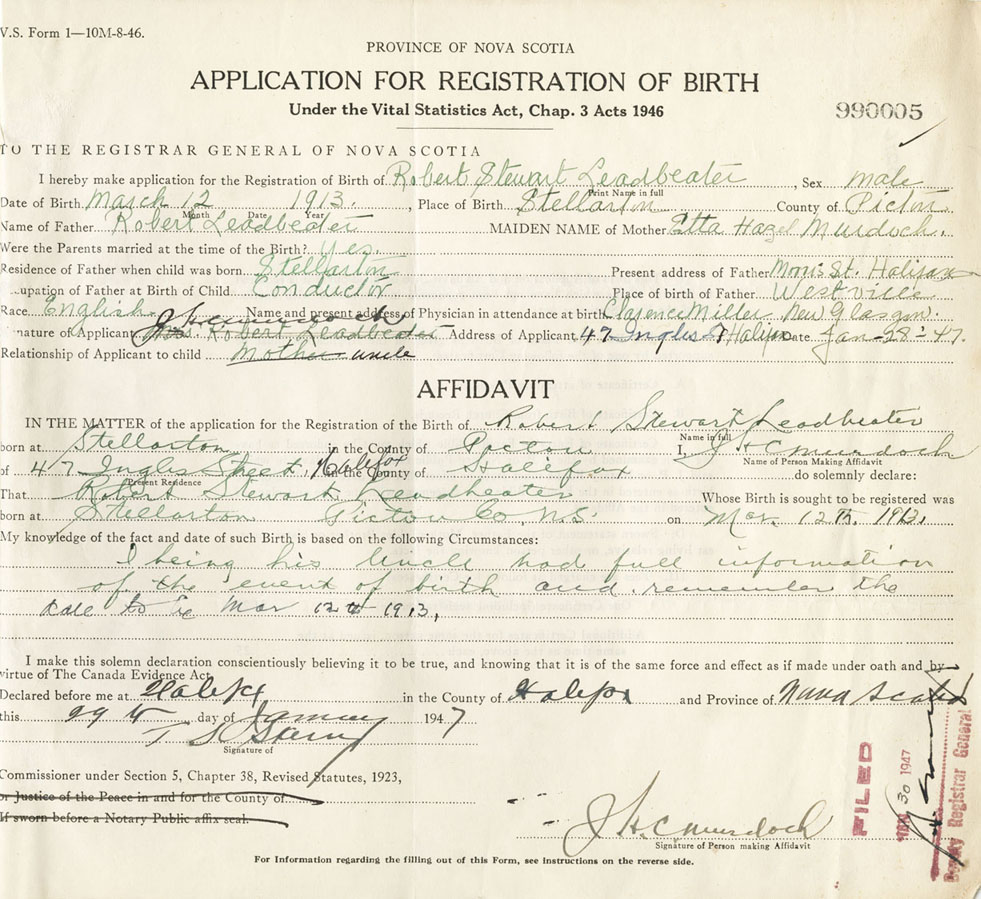 V.S. Form 1—10M-8-46.
PROVINCE OF NOVA SCOTIA
APPLICATION FOR REGISTRATION OF BIRTH
Under the Vital Statistics Act, Chap. 3 Acts 1946
990005
TO THE REGISTRAR GENERAL OF NOVA SCOTIA
I hereby make application for the Registration of Birth of Robert Stewart Leadbeater, Sex male
Print Name in full
Date of Birth March 12 1913., Place of Birth Stellarton County of Pictou.
Month Date Year
Name of Father Robert Leadbeater MAIDEN NAME of Mother Etta Hazel Murdoch.
Were the Parents married at the time of the Birth? Yes.
Residence of Father when child was born Stellarton Present address of Father Morris St. Halifax
upation of Father at Birth of Child Conductor Place of birth of Father Westville
Race English. Name and present address of Physician in attendance at birth Clarence Miller, New Glasgow.
nature of Applicant Mrs. Robert Leadbeater Address of Applicant 47 Inglis St Halifax Date Jan-28-47.
Relationship of Applicant to child Mother uncle
AFFIDAVIT
IN THE MATTER of the application for the Registration of the Birth of Robert Stewart Leadbeater
Name in full
born at Stellarton in the County of Pictou I, J H C Murdoch
Name of Person Making Affidavit
of 47 Inglis Street, Halifax in the County of Halifax do solemnly declare:
Present Residence
That Robert Stewart Leadbeater Whose Birth is sought to be registered was
born at Stellarton Pictou Co, N.S. on Mar. 12th. 1913.
My knowledge of the fact and date of such Birth is based on the following Circumstances:
I being his Uncle had full information
of the event of birth and remember the
date to be Mar 12th 1913.
I make this solemn declaration conscientiously believing it to be true, and knowing that it is of the same force and effect as if made under oath and by
virtue of The Canada Evidence Act.
Declared before me at Halifax in the County of Halifax and Province of Nova Scotia
this 29th day of January 1947
Signature of
Commissioner under Section 5, Chapter 38, Revised Statutes, 1923,
or Justice of the Peace in and for the County of
If sworn before a Notary Public affix seal.
J H C Murdoch
Signature of Person making Affidavit
FILED
JAN 30 1947
Deputy Registrar General
For Information regarding the filling out of this Form, see instructions on the reverse side.